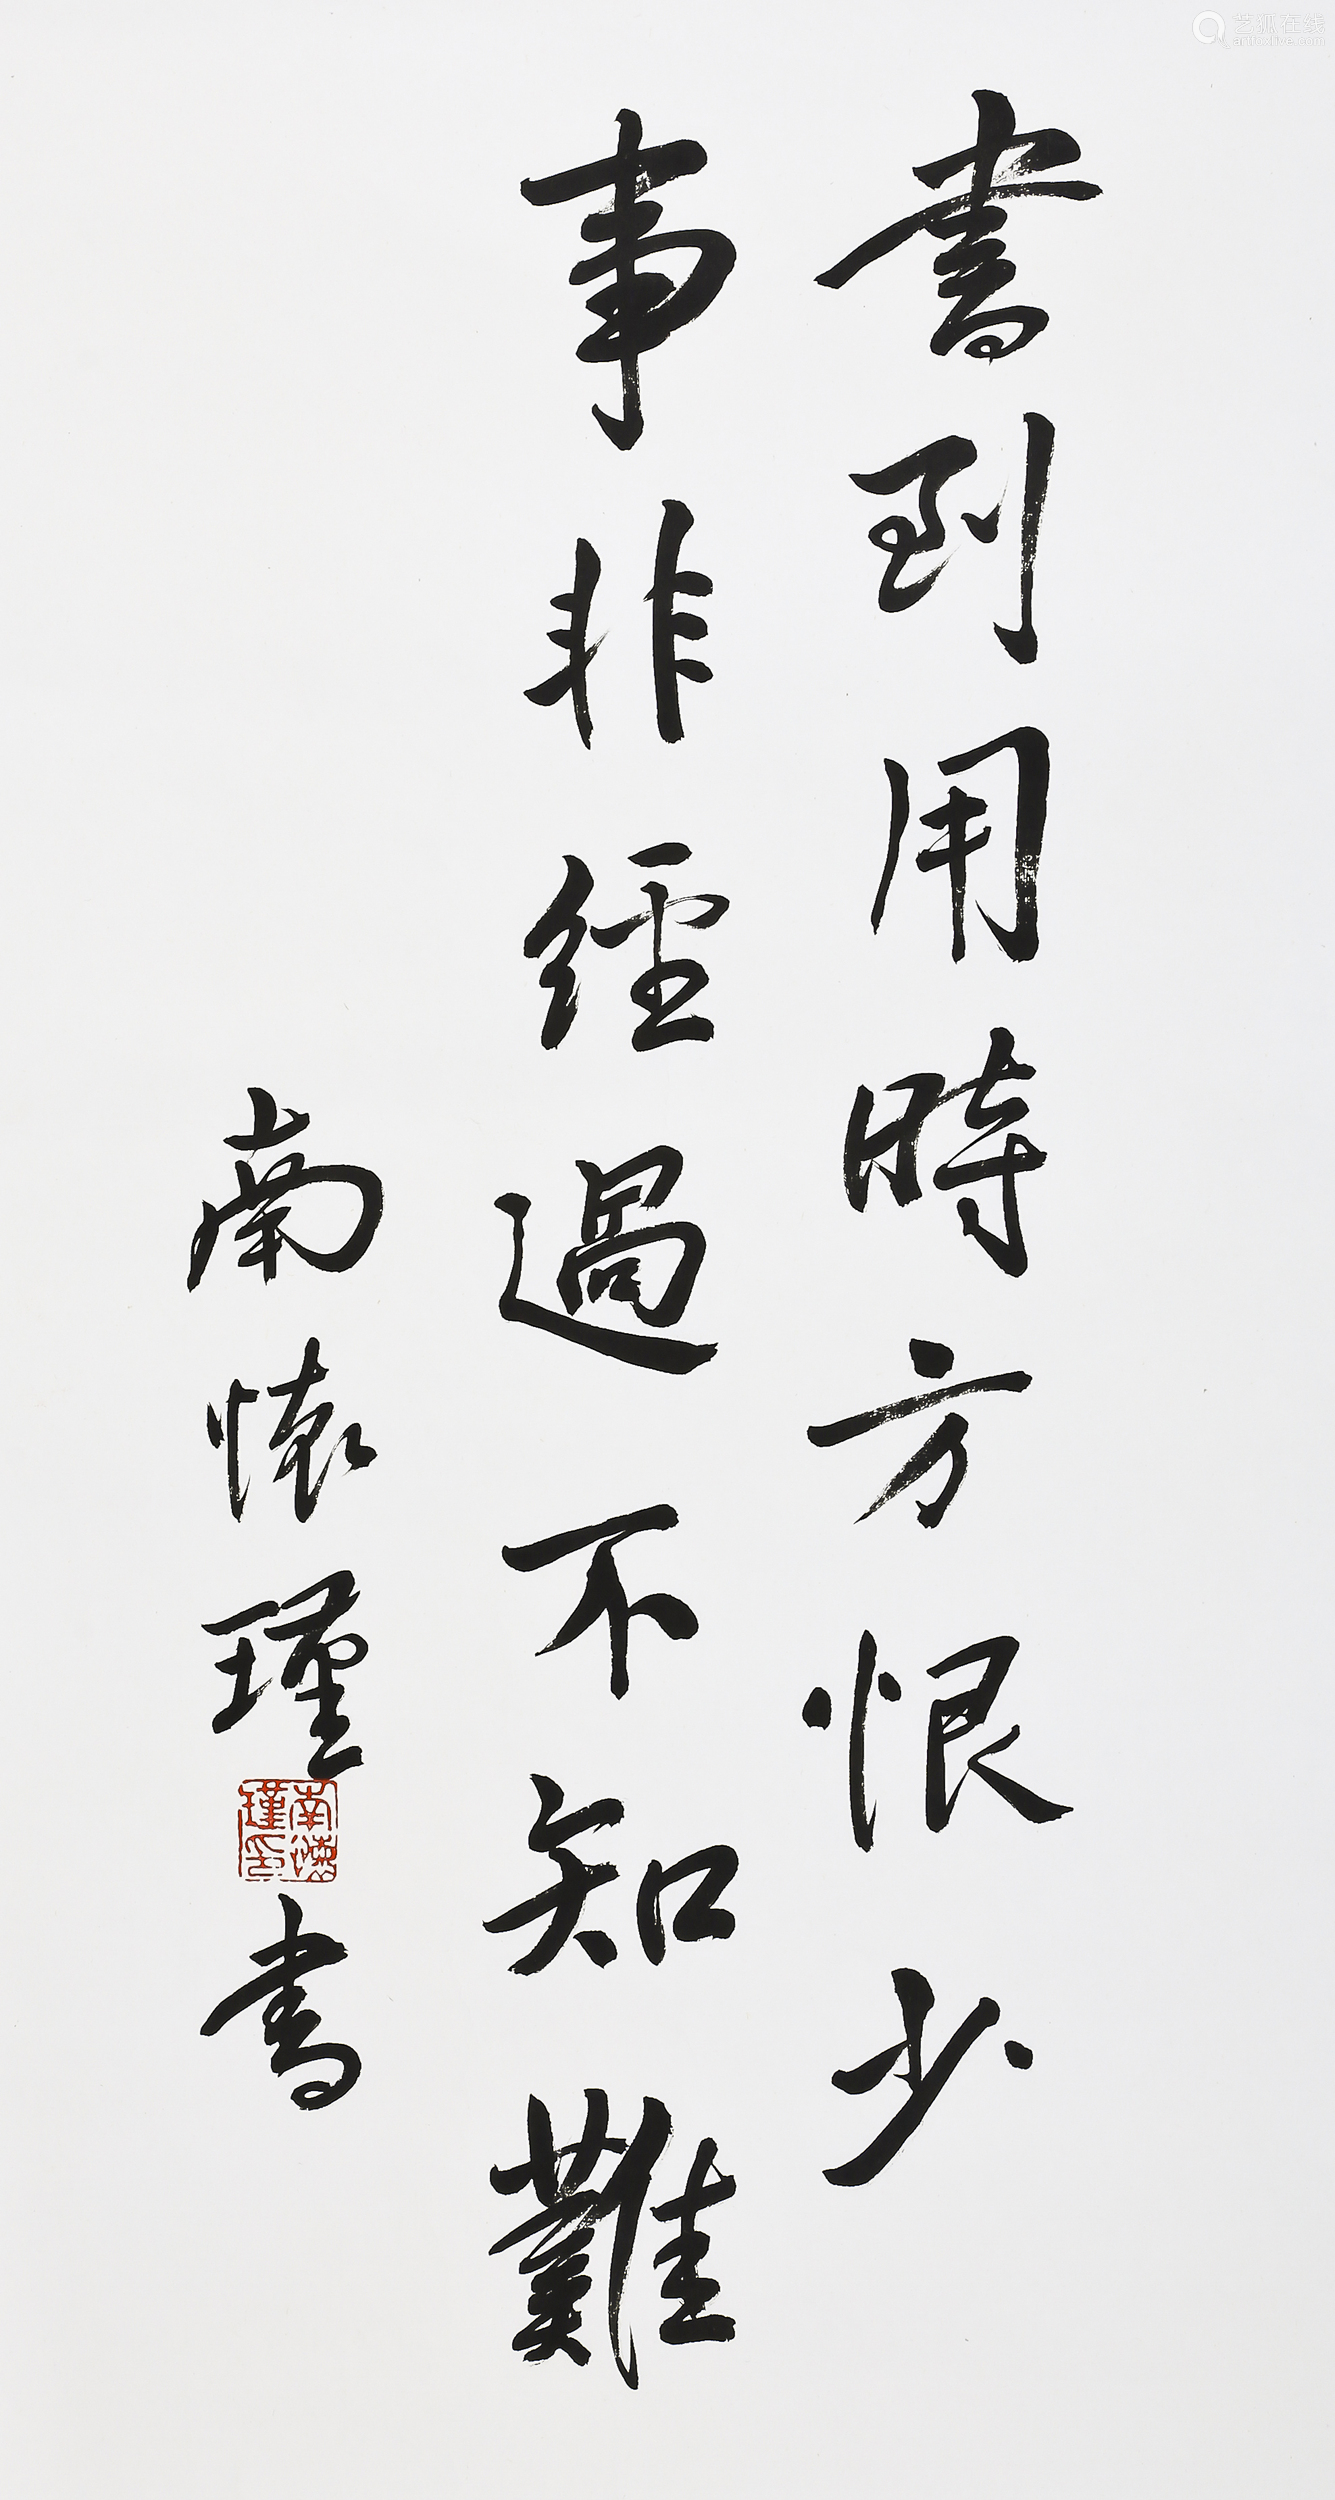 書到用時方恨少
事非經過不知難
南懷瑾書
南懷瑾印
艺狐在线
artfoxlive.com